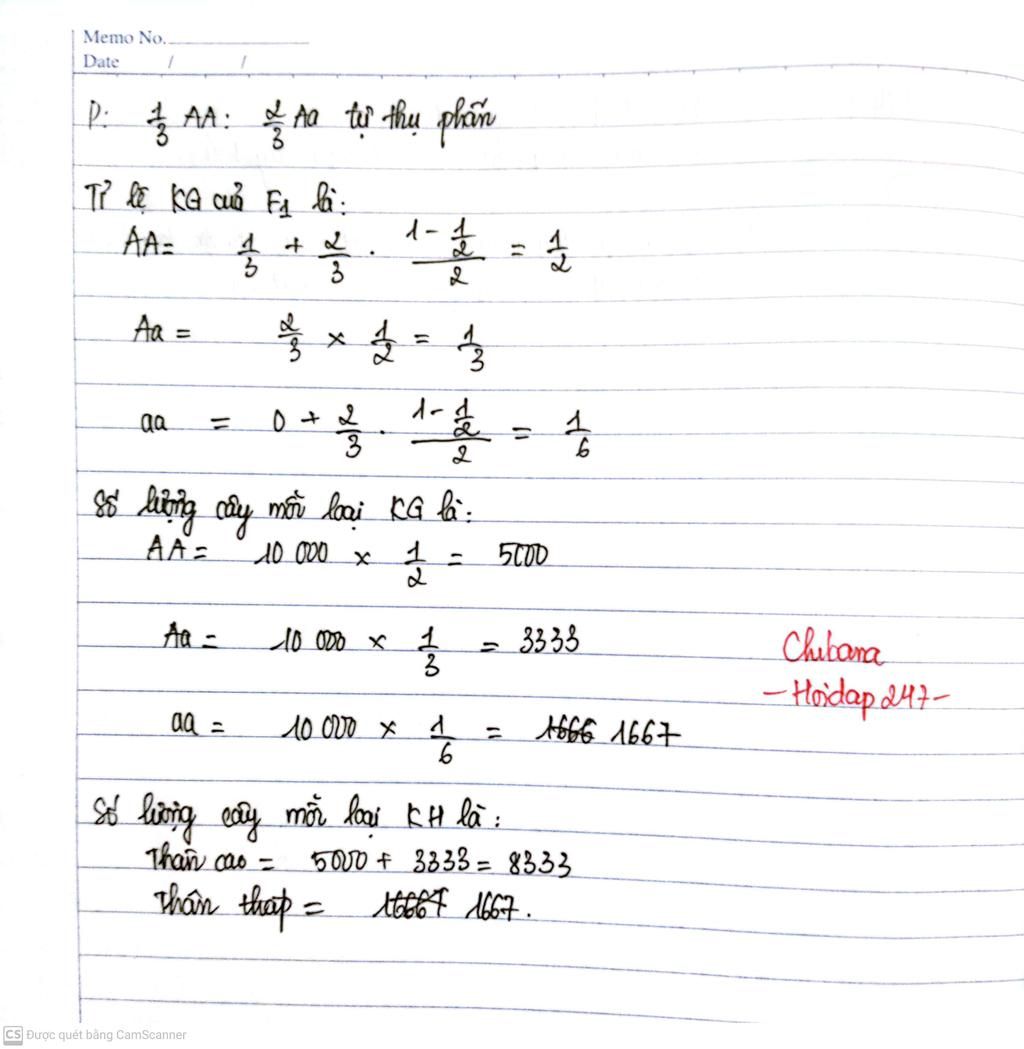 Memo No.
Date / /
P: 1/3 AA: 2/3 Aa tự thụ phấn
Tỉ lệ KG của F1 là:
AA= 1/3 + 2/3 . (1-1/2)/2 = 1/2
Aa = 2/3 × 1/2 = 1/3
aa = 0 + 2/3 . (1-1/2)/2 = 1/6
Số lượng cây mỗi loại KG là:
AA = 10 000 × 1/2 = 5000
Aa = 10 000 × 1/3 = 3333
Chibana
- Hoidap247-
aa = 10 000 × 1/6 = 1666 1667
Số lượng cây mỗi loại KH là:
Thân cao = 5000 + 3333 = 8333
Thân thấp = 1667.
CS Được quét bằng CamScanner